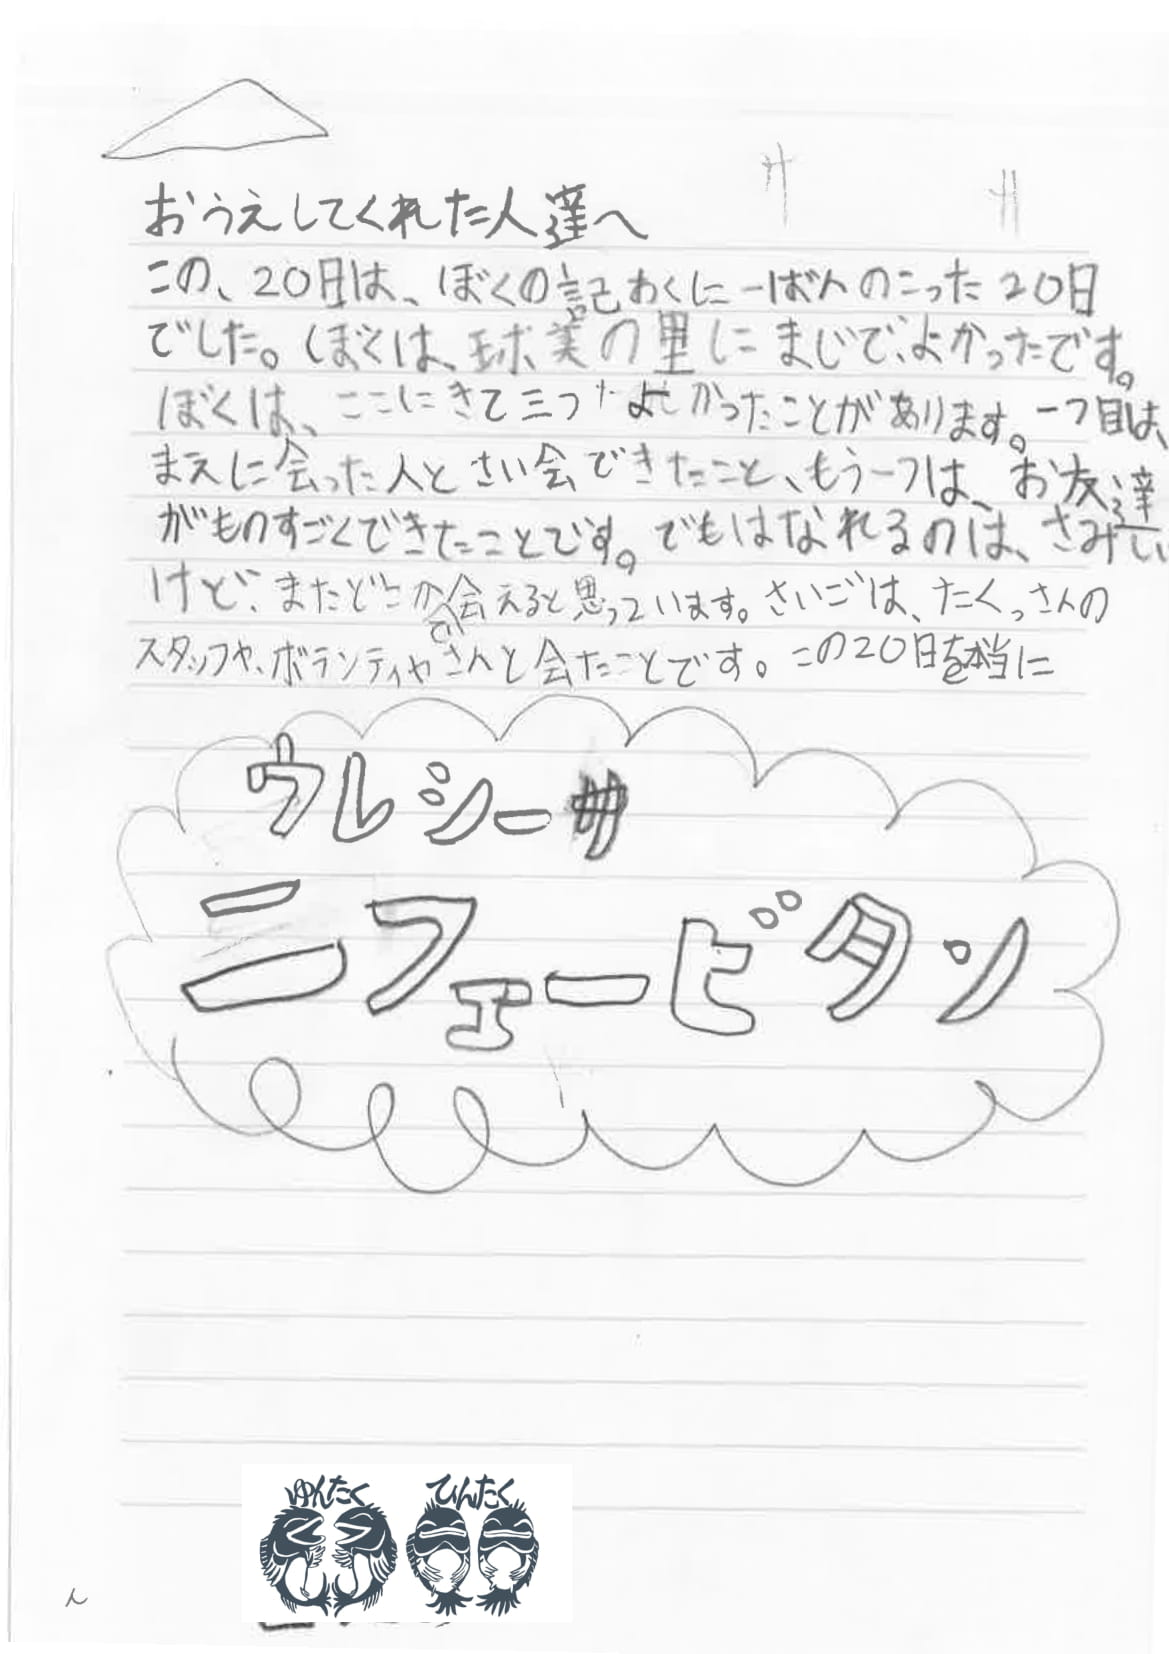 おうえしてくれた人達へ
この、20日は、ぼくの記おくに一ばんのこった20日
でした。ぼくは、球美の里にまじで、よかったです。
ぼくは、ここにきて三つよかったことがあります。一つ目は、
まえに会った人とさい会できたこと、もう一つは、お友達
がものすごくできたことです。でもはなれるのは、さみしい
けど、またどこかで会えると思っています。さいごは、たくっさんの
スタッフや、ボランティヤさんと会たことです。この20日を本当に
ウレシーサ
ニフェービタン
ゆんたく ひんたく